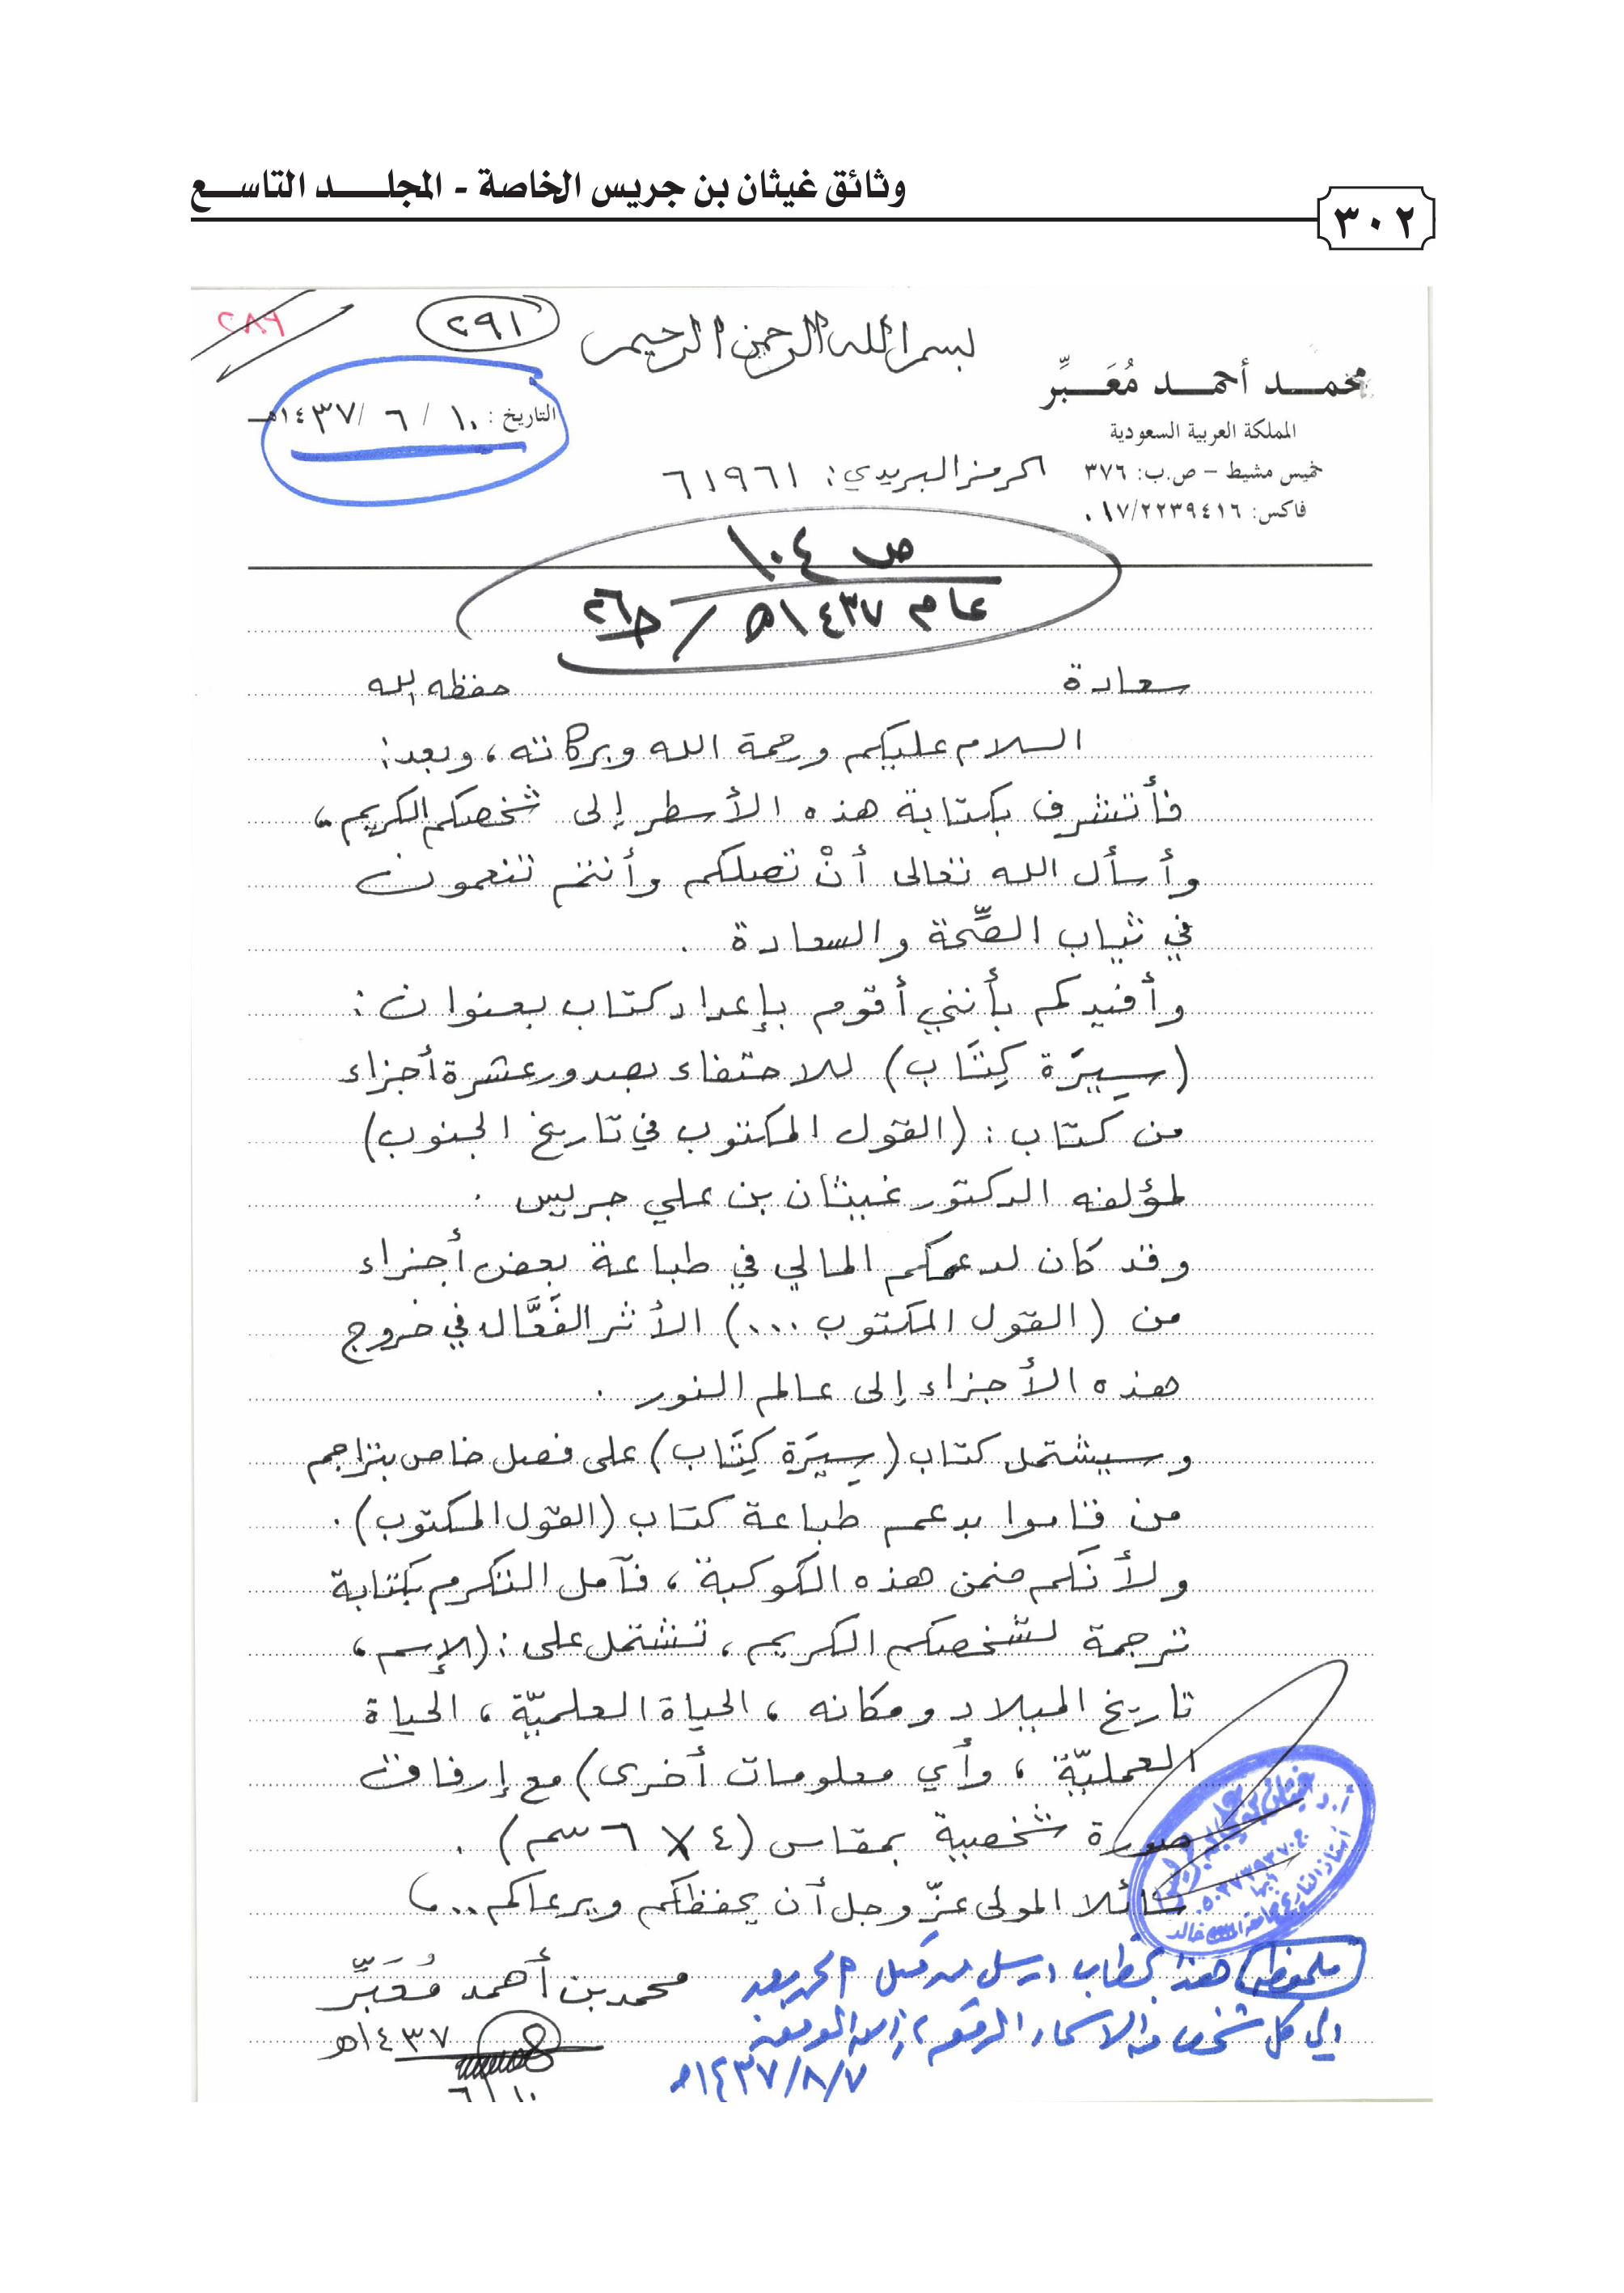 وثائق غيثان بن جريس الخاصة - المجلـــد التاســـع
٣٠٢
٢٨٩
٢٩١
بسم الله الرحمن الرحيم
محمـــد أحمـــد مُعَـــبِّر
المملكة العربية السعودية
خميس مشيط - ص.ب: ٣٧٦
الرمز البريدي: ٦١٩٦١
فاكس: ٠١٧/٢٢٣٩٤١٦
التاريخ: ١٠ / ٦ / ١٤٣٧هـ
ص ١٠٤
عام ١٤٣٧هـ / ج٢٦
سعادة حفظه الله
السلام عليكم ورحمة الله وبركاته، وبعد:
فأتشرف بكتابة هذه الأسطر إلى شخصكم الكريم،
وأسأل الله تعالى أنْ تصلكم وأنتم تنعمون
في ثياب الصِّحة والسعادة .
وأفيدكم بأنني أقوم بإعداد كتاب بعنوان:
(سِيرَة كِتَاب) للاحتفاء بصدور عشرة أجزاء
من كتاب: (القول المكتوب في تاريخ الجنوب)
لمؤلفه الدكتور غيثان بن علي جريس .
وقد كان لدعمكم المالي في طباعة بعض أجزاء
من (القول المكتوب ...) الأثر الفَعَّال في خروج
هذه الأجزاء إلى عالم النور .
وسيشتمل كتاب (سِيرَة كِتَاب) على فصل خاص بتراجم
من قاموا بدعم طباعة كتاب (القول المكتوب).
ولأنكم ضمن هذه الكوكبة، فآمل التكرم بكتابة
ترجمة لشخصكم الكريم، تشتمل على: (الإسم،
تاريخ الميلاد ومكانه، الحياة العلميّة، الحياة
العمليّة، وأي معلومات أخرى) مع إرفاق
صورة شخصية بمقاس (٤ X ٦ سم) .
سائلا المولى عزّ وجل أن يحفظكم ويرعاكم..،
محمد بن أحمد مُعَبِّر
١٤٣٧هـ
٦/١٠
أ.د غيثان بن علي بن جريس
أستاذ التاريخ بجامعة الملك خالد
ملحوظة هذا خطاب ارسل من قبل
الى كل شخص من الاسماء
١٤٣٧/٨/٧هـ